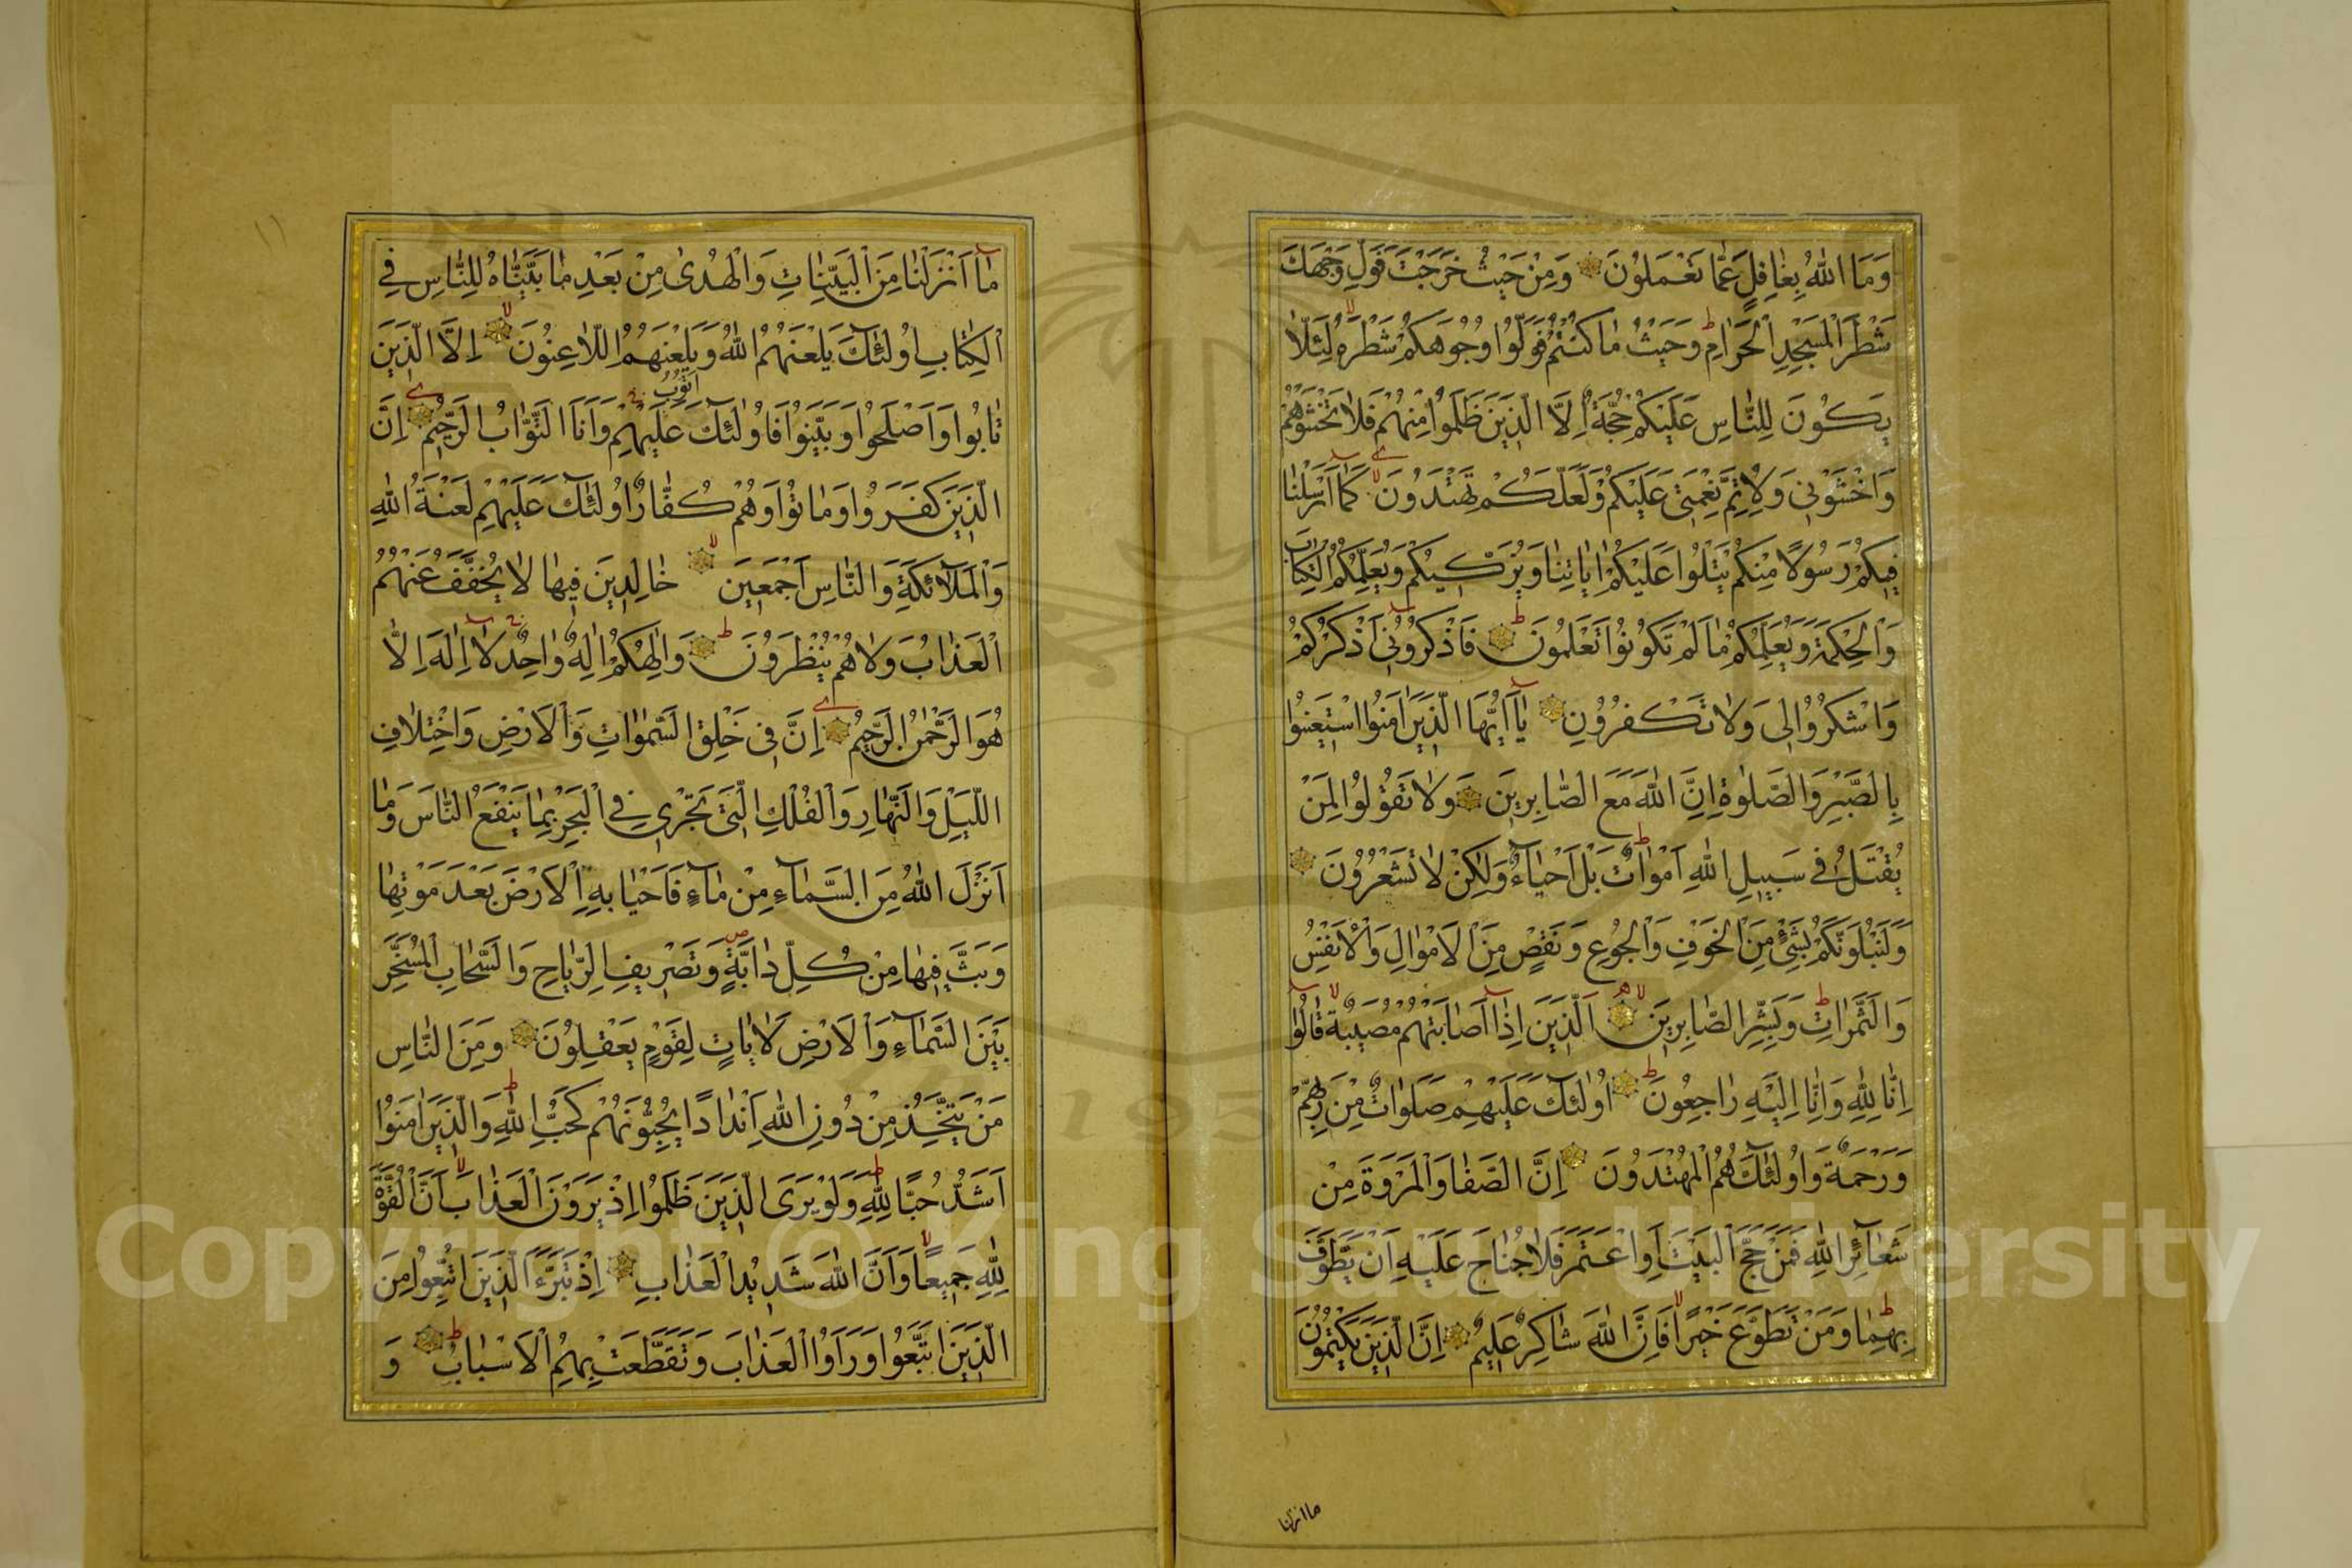 وَمَا اللّٰهُ بِغَافِلٍ عَمَّا تَعْمَلُوْنَ وَمِنْ حَيْثُ خَرَجْتَ فَوَلِّ وَجْهَكَ
شَطْرَ الْمَسْجِدِ الْحَرَامِ وَحَيْثُ مَا كُنْتُمْ فَوَلُّوْا وُجُوْهَكُمْ شَطْرَهُ لِئَلَّا
يَكُوْنَ لِلنَّاسِ عَلَيْكُمْ حُجَّةٌ اِلَّا الَّذِيْنَ ظَلَمُوْا مِنْهُمْ فَلَا تَخْشَوْهُمْ
وَاخْشَوْنِيْ وَلِاُتِمَّ نِعْمَتِيْ عَلَيْكُمْ وَلَعَلَّكُمْ تَهْتَدُوْنَ كَمَا اَرْسَلْنَا
فِيْكُمْ رَسُوْلًا مِنْكُمْ يَتْلُوْا عَلَيْكُمْ اٰيَاتِنَا وَيُزَكِّيْكُمْ وَيُعَلِّمُكُمُ الْكِتَابَ
وَالْحِكْمَةَ وَيُعَلِّمُكُمْ مَا لَمْ تَكُوْنُوْا تَعْلَمُوْنَ فَاذْكُرُوْنِيْ اَذْكُرْكُمْ
وَاشْكُرُوْا لِيْ وَلَا تَكْفُرُوْنِ يَا اَيُّهَا الَّذِيْنَ اٰمَنُوا اسْتَعِيْنُوْا
بِالصَّبْرِ وَالصَّلٰوةِ اِنَّ اللّٰهَ مَعَ الصَّابِرِيْنَ وَلَا تَقُوْلُوْا لِمَنْ
يُقْتَلُ فِيْ سَبِيْلِ اللّٰهِ اَمْوَاتٌ بَلْ اَحْيَاۤءٌ وَلٰكِنْ لَا تَشْعُرُوْنَ
وَلَنَبْلُوَنَّكُمْ بِشَيْءٍ مِنَ الْخَوْفِ وَالْجُوْعِ وَنَقْصٍ مِنَ الْاَمْوَالِ وَالْاَنْفُسِ
وَالثَّمَرَاتِ وَبَشِّرِ الصَّابِرِيْنَ اَلَّذِيْنَ اِذَا اَصَابَتْهُمْ مُصِيْبَةٌ قَالُوْا
اِنَّا لِلّٰهِ وَاِنَّا اِلَيْهِ رَاجِعُوْنَ اُولٰۤئِكَ عَلَيْهِمْ صَلَوَاتٌ مِنْ رَبِّهِمْ
وَرَحْمَةٌ وَاُولٰۤئِكَ هُمُ الْمُهْتَدُوْنَ اِنَّ الصَّفَا وَالْمَرْوَةَ مِنْ
شَعَاۤئِرِ اللّٰهِ فَمَنْ حَجَّ الْبَيْتَ اَوِ اعْتَمَرَ فَلَا جُنَاحَ عَلَيْهِ اَنْ يَطَّوَّفَ
بِهِمَا وَمَنْ تَطَوَّعَ خَيْرًا فَاِنَّ اللّٰهَ شَاكِرٌ عَلِيْمٌ اِنَّ الَّذِيْنَ يَكْتُمُوْنَ
ما انزلنا
مَا اَنْزَلْنَا مِنَ الْبَيِّنَاتِ وَالْهُدٰى مِنْ بَعْدِ مَا بَيَّنَّاهُ لِلنَّاسِ فِي
الْكِتَابِ اُولٰۤئِكَ يَلْعَنُهُمُ اللّٰهُ وَيَلْعَنُهُمُ اللَّاعِنُوْنَ اِلَّا الَّذِيْنَ
تَابُوْا وَاَصْلَحُوْا وَبَيَّنُوْا فَاُولٰۤئِكَ اَتُوْبُ عَلَيْهِمْ وَاَنَا التَّوَّابُ الرَّحِيْمُ اِنَّ
الَّذِيْنَ كَفَرُوْا وَمَاتُوْا وَهُمْ كُفَّارٌ اُولٰۤئِكَ عَلَيْهِمْ لَعْنَةُ اللّٰهِ
وَالْمَلٰۤائِكَةِ وَالنَّاسِ اَجْمَعِيْنَ خَالِدِيْنَ فِيْهَا لَا يُخَفَّفُ عَنْهُمُ
الْعَذَابُ وَلَا هُمْ يُنْظَرُوْنَ وَاِلٰهُكُمْ اِلٰهٌ وَاحِدٌ لَا اِلٰهَ اِلَّا
هُوَ الرَّحْمٰنُ الرَّحِيْمُ اِنَّ فِيْ خَلْقِ السَّمٰوَاتِ وَالْاَرْضِ وَاخْتِلَافِ
اللَّيْلِ وَالنَّهَارِ وَالْفُلْكِ الَّتِيْ تَجْرِيْ فِي الْبَحْرِ بِمَا يَنْفَعُ النَّاسَ وَمَا
اَنْزَلَ اللّٰهُ مِنَ السَّمَاۤءِ مِنْ مَاۤءٍ فَاَحْيَا بِهِ الْاَرْضَ بَعْدَ مَوْتِهَا
وَبَثَّ فِيْهَا مِنْ كُلِّ دَابَّةٍ وَتَصْرِيْفِ الرِّيَاحِ وَالسَّحَابِ الْمُسَخَّرِ
بَيْنَ السَّمَاۤءِ وَالْاَرْضِ لَاٰيَاتٍ لِقَوْمٍ يَعْقِلُوْنَ وَمِنَ النَّاسِ
مَنْ يَتَّخِذُ مِنْ دُوْنِ اللّٰهِ اَنْدَادًا يُحِبُّوْنَهُمْ كَحُبِّ اللّٰهِ وَالَّذِيْنَ اٰمَنُوْا
اَشَدُّ حُبًّا لِلّٰهِ وَلَوْ يَرَى الَّذِيْنَ ظَلَمُوْا اِذْ يَرَوْنَ الْعَذَابَ اَنَّ الْقُوَّةَ
لِلّٰهِ جَمِيْعًا وَاَنَّ اللّٰهَ شَدِيْدُ الْعَذَابِ اِذْ تَبَرَّءَ الَّذِيْنَ اتُّبِعُوْا مِنَ
الَّذِيْنَ اتَّبَعُوْا وَرَاَوُا الْعَذَابَ وَتَقَطَّعَتْ بِهِمُ الْاَسْبَابُ وَ
Copyright © King Saud University